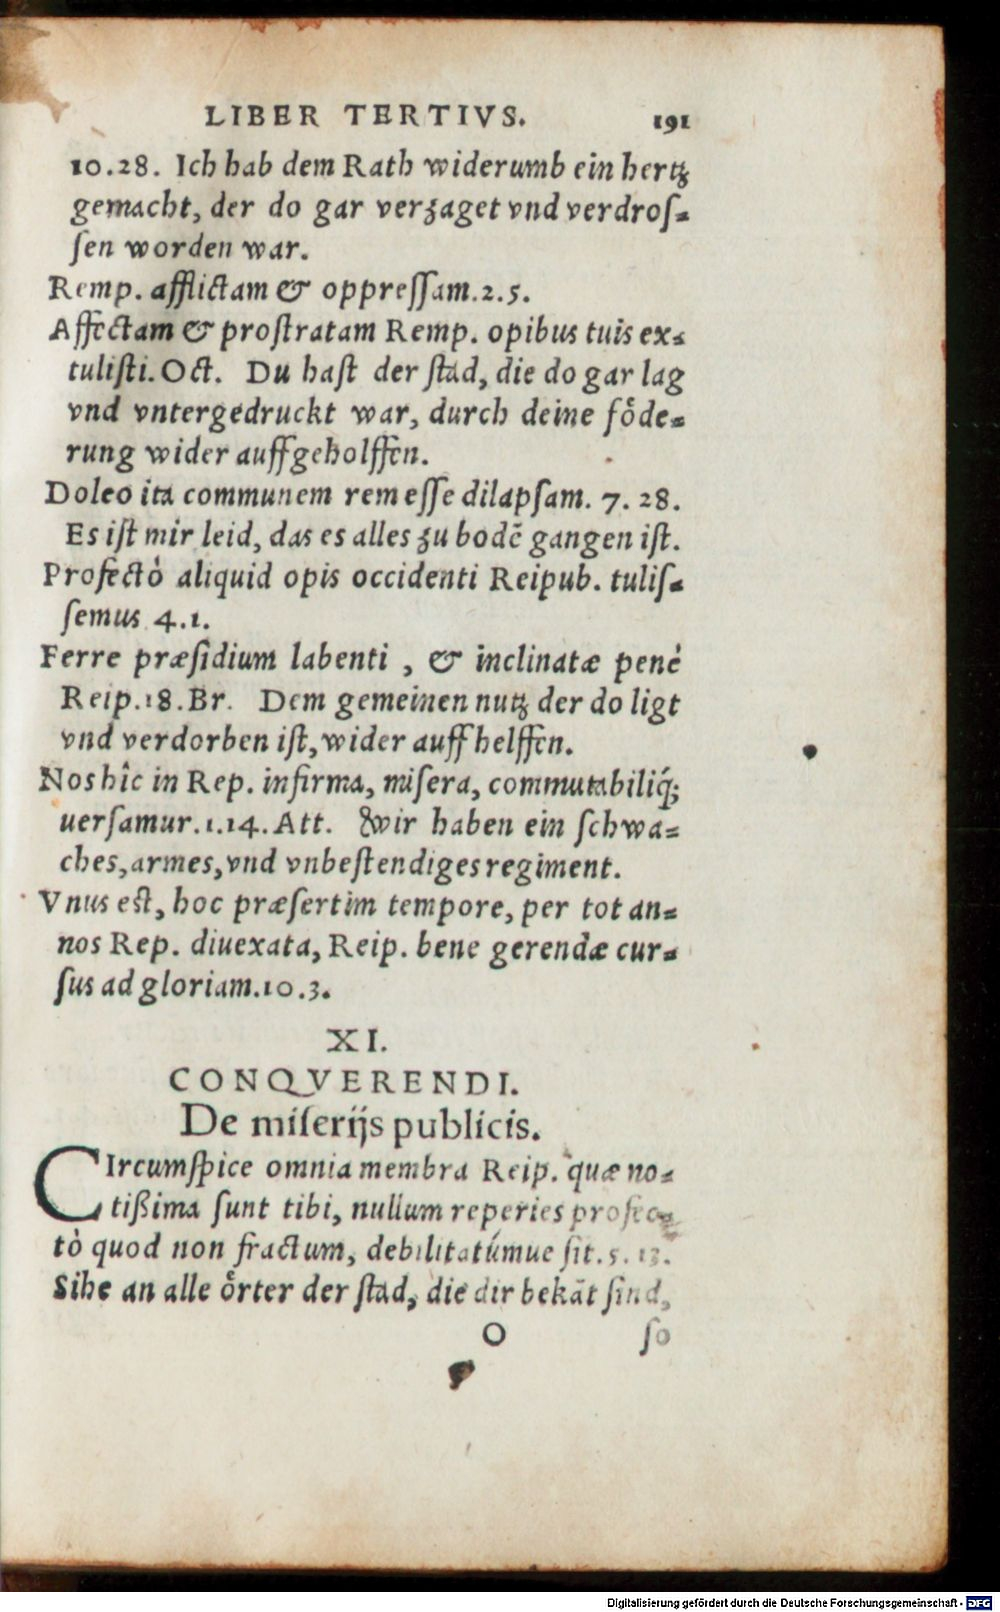 LIBER TERTIVS. 191
10.28. Ich hab dem Rath widerumb ein hertz
gemacht, der do gar verzaget vnd verdroſ-
ſen worden war.
Remp. afflictam & oppreſſam.2.5.
Affectam & proſtratam Remp. opibus tuis ex-
tuliſti. Oct. Du haſt der ſtad, die do gar lag
vnd vntergedruckt war, durch deine foͤde-
rung wider auffgeholffen.
Doleo ita communem rem eſſe dilapſam. 7. 28.
Es iſt mir leid, das es alles zu bodē gangen iſt.
Profectò aliquid opis occidenti Reipub. tuliſ-
ſemus 4.1.
Ferre præſidium labenti , & inclinatæ penè
Reip.18.Br. Dem gemeinen nutz der do ligt
vnd verdorben iſt, wider auff helffen.
Nos hîc in Rep. infirma, miſera, commutabiliq́;
uerſamur.1.14.Att. Wir haben ein ſchwa-
ches, armes, vnd vnbeſtendiges regiment.
Vnus eſt, hoc præſertim tempore, per tot an-
nos Rep. diuexata, Reip. bene gerendæ cur-
ſus ad gloriam.10.3.
XI.
CONQVERENDI.
De miſerijs publicis.
CIrcumſpice omnia membra Reip. quæ no-
tißima ſunt tibi, nullum reperies profec-
tò quod non fractum, debilitatúmue ſit.5.13.
Sihe an alle oͤrter der ſtad, die dir bekāt ſind,
O ſo
Digitalisierung gefördert durch die Deutsche Forschungsgemeinschaft - DFG